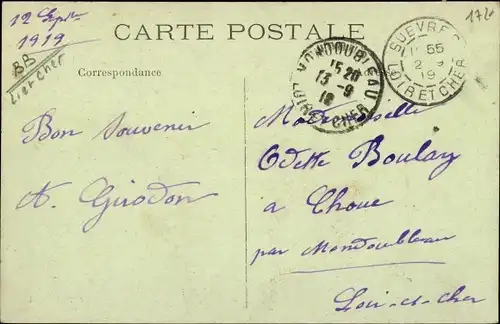 12 Sept
1919
BB
Loir et Cher
CARTE POSTALE
Correspondance
MONDOUBLEAU
15 20
13 -9
19
LOIR-ET-CHER
SUEVRES
55
2 9
19
LOIR ET CHER
172
Bon Souvenir
A. Girodon
Mademoiselle
Odette Boulay
a Choue
par Mondoubleau
Loir-et-cher